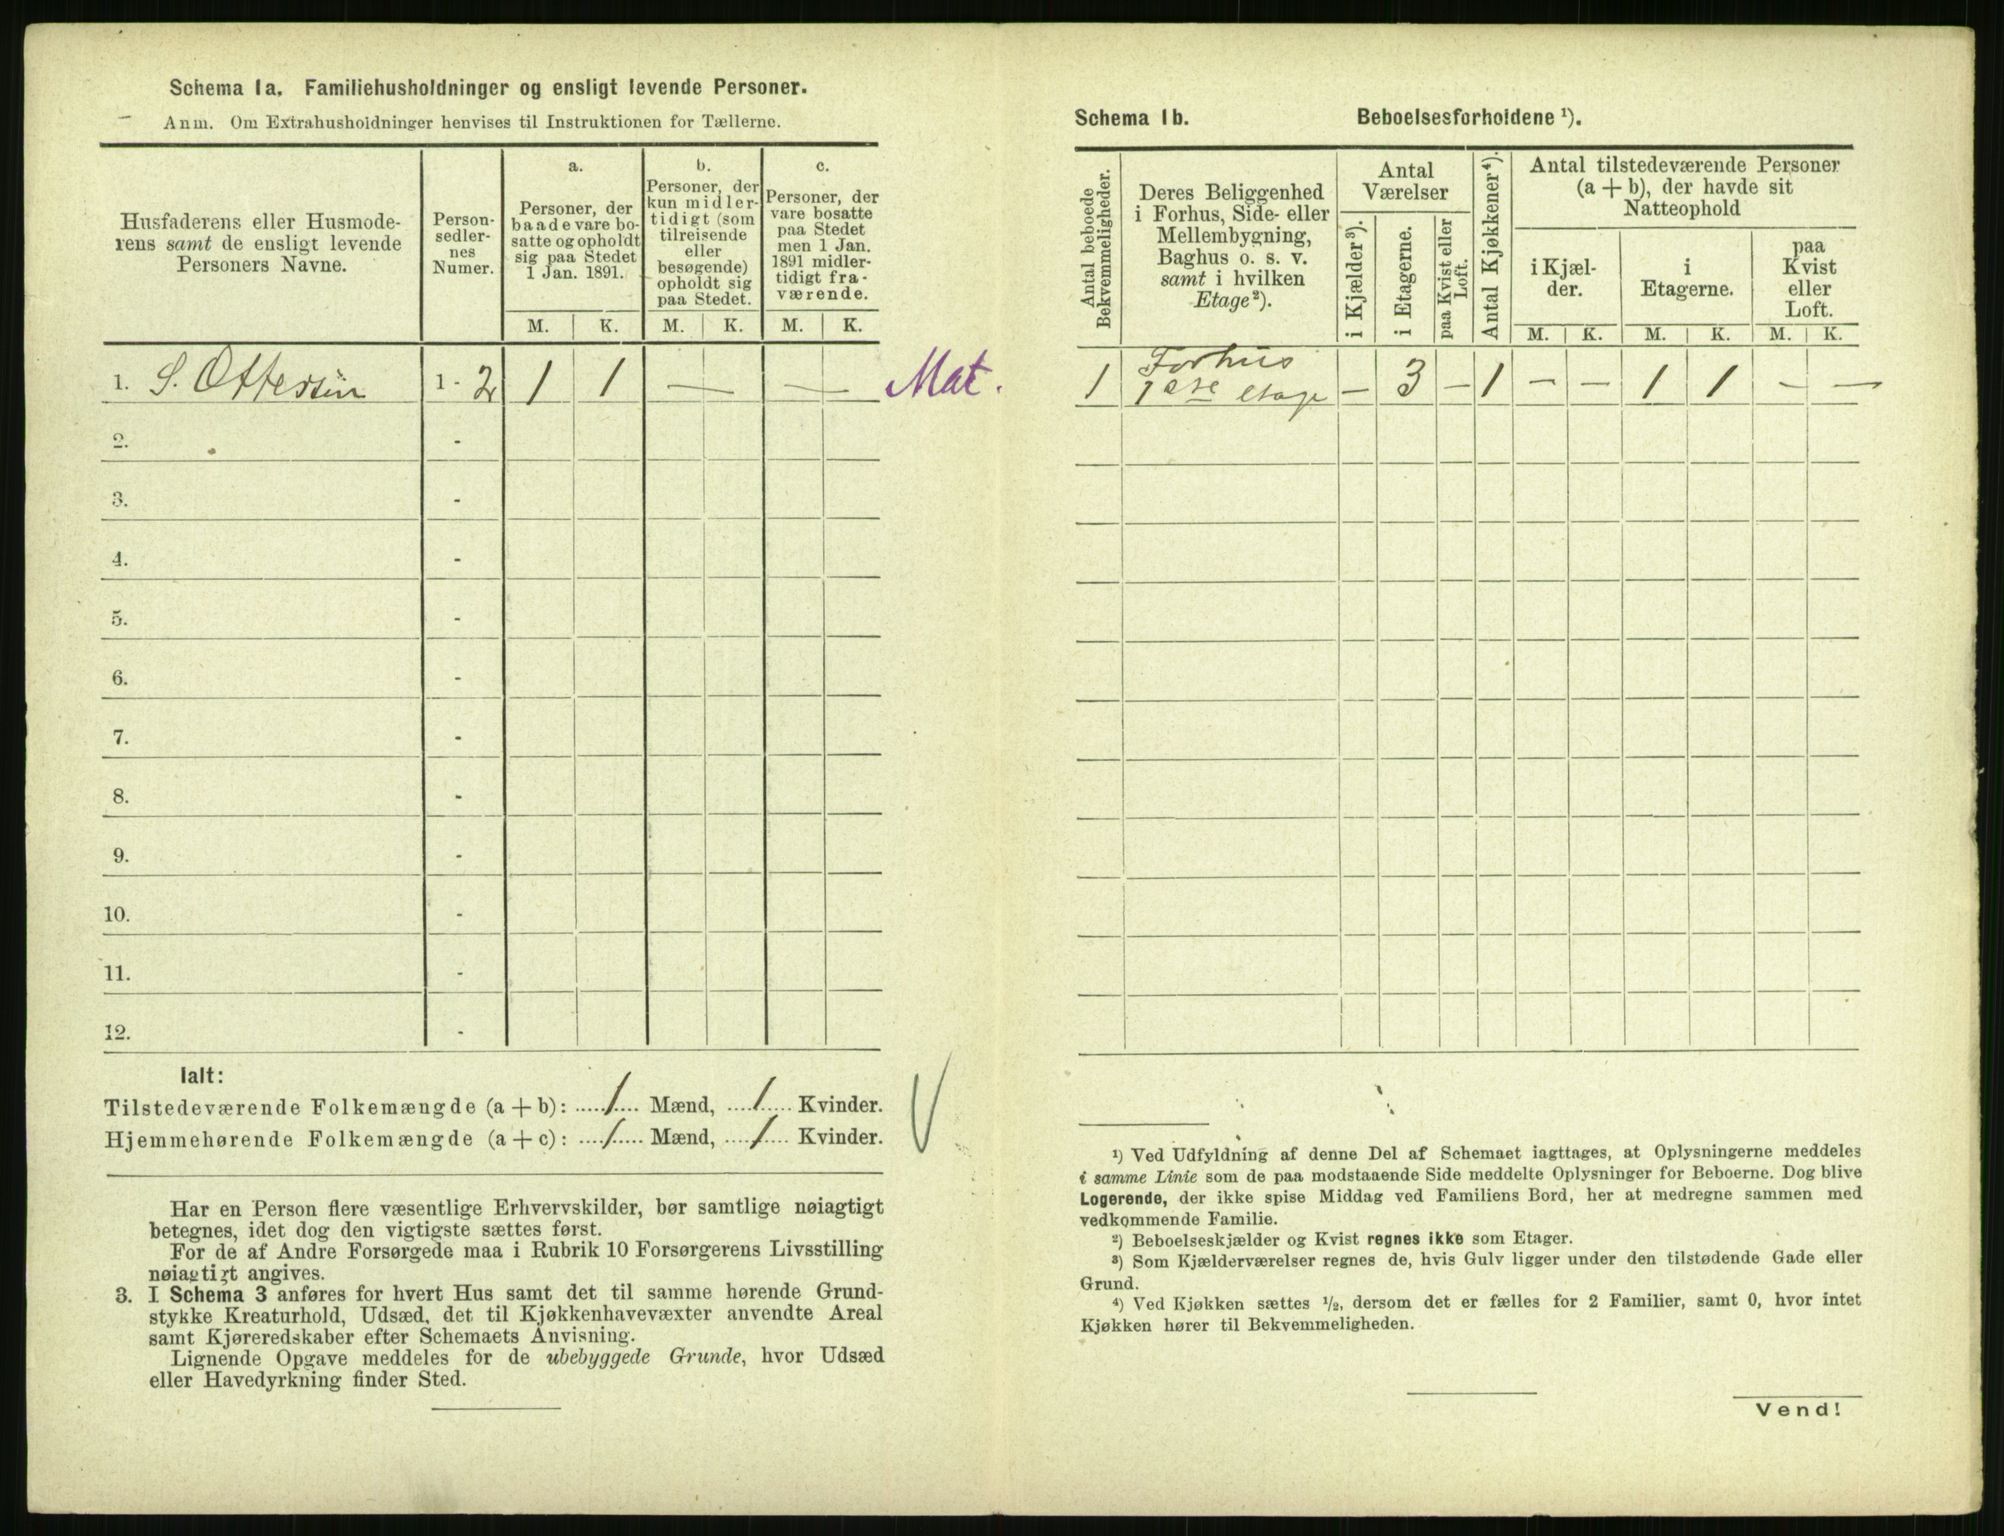 Schema 1a. Familiehusholdninger og ensligt levende Personer.
Anm. Om Extrahusholdninger henvises til Instruktionen for Tællerne.
Husfaderens eller Husmode-
rens samt de ensligt levende
Personers Navne.
Person-
sedler-
nes
Numer.
a.
Personer, der
baade vare bo-
satte og opholdt
sig paa Stedet
1 Jan. 1891.
b.
Personer, der
kun midler-
tidigt (som
tilreisende
eller
besøgende)
opholdt sig
paa Stedet.
c.
Personer, der
vare bosatte
paa Stedet
men 1 Jan.
1891 midler-
tidigt fra-
værende.
M. K. M. K. M. K.
1. S. Ottersen 1 - 2 1 1 — — Mat.
2. -
3. -
4. -
5. -
6. -
7. -
8. -
9. -
10. -
11. -
12. -
Ialt:
Tilstedeværende Folkemængde (a + b): 1 Mænd, 1 Kvinder.
Hjemmehørende Folkemængde (a + c): 1 Mænd, 1 Kvinder.
Har en Person flere væsentlige Erhvervskilder, bør samtlige nøiagtigt
betegnes, idet dog den vigtigste sættes først.
For de af Andre Forsørgede maa i Rubrik 10 Forsørgerens Livsstilling
nøiagtigt angives.
3. I Schema 3 anføres for hvert Hus samt det til samme hørende Grund-
stykke Kreaturhold, Udsæd, det til Kjøkkenhavevæxter anvendte Areal
samt Kjøreredskaber efter Schemaets Anvisning.
Lignende Opgave meddeles for de ubebyggede Grunde, hvor Udsæd
eller Havedyrkning finder Sted.
Schema 1b. Beboelsesforholdene ¹).
Antal beboede
Bekvemmeligheder.
Deres Beliggenhed
i Forhus, Side- eller
Mellembygning,
Baghus o. s. v.
samt i hvilken
Etage²).
Antal
Værelser
i Kjælder³).
i Etagerne.
paa Kvist eller
Loft.
Antal Kjøkkener⁴).
Antal tilstedeværende Personer
(a + b), der havde sit
Natteophold
i Kjæl-
der.
i
Etagerne.
paa
Kvist
eller
Loft.
M. K. M. K. M. K.
1 Forhus
1ste etage — 3 — 1 — — 1 1 — —
¹) Ved Udfyldning af denne Del af Schemaet iagttages, at Oplysningerne meddeles
i samme Linie som de paa modstaaende Side meddelte Oplysninger for Beboerne. Dog blive
Logerende, der ikke spise Middag ved Familiens Bord, her at medregne sammen med
vedkommende Familie.
²) Beboelseskjælder og Kvist regnes ikke som Etager.
³) Som Kjælderværelser regnes de, hvis Gulv ligger under den tilstødende Gade eller
Grund.
⁴) Ved Kjøkken sættes ½, dersom det er fælles for 2 Familier, samt 0, hvor intet
Kjøkken hører til Bekvemmeligheden.
Vend!